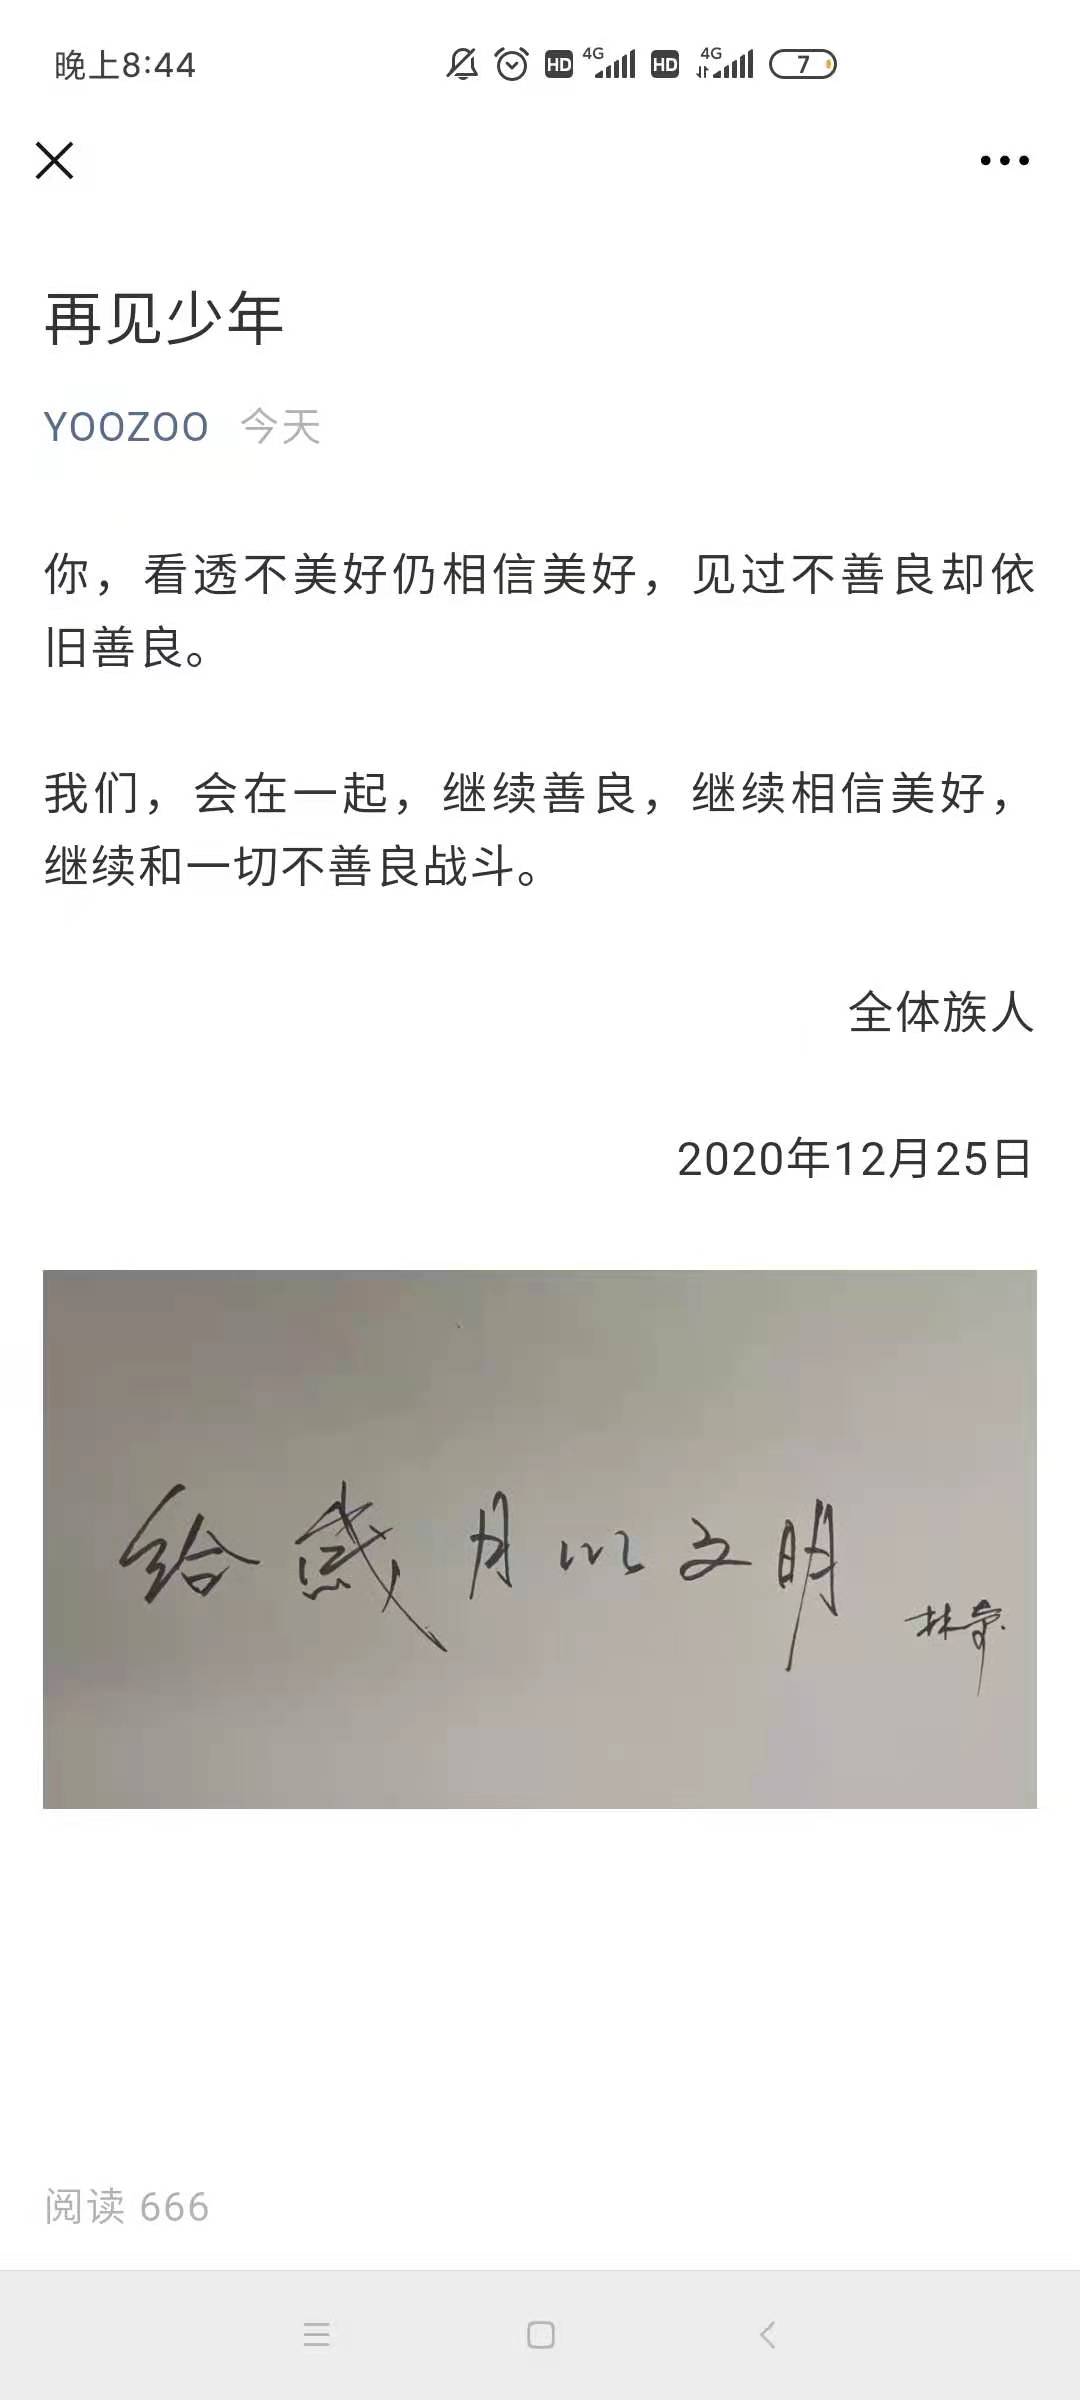 晚上8:44
HD 4G HD 4G 7
再见少年
YOOZOO 今天
你，看透不美好仍相信美好，见过不善良却依
旧善良。
我们，会在一起，继续善良，继续相信美好，
继续和一切不善良战斗。
全体族人
2020年12月25日
给岁月以文明
林奇
阅读 666